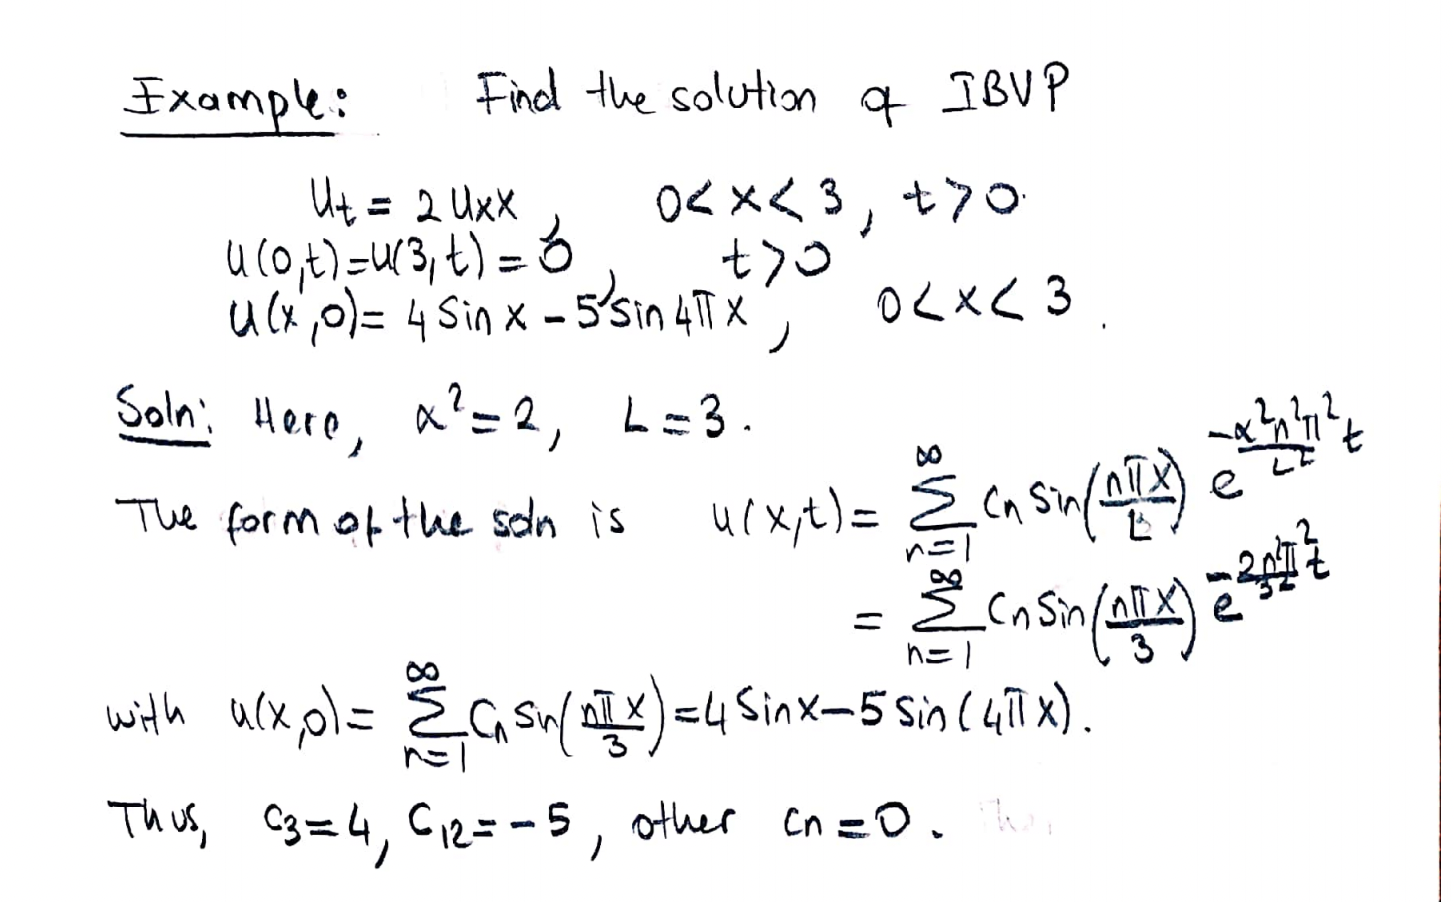 Example: Find the solution of IBVP
Ut = 2Uxx, 0<x<3, t>0.
u(0,t)=u(3,t)=0, t>0
u(x,0)= 4 Sin x - 5 sin 4πx, 0<x<3.
Soln: Here, α²=2, L=3.
The form of the soln is u(x,t)= ∑_{n=1}^{∞} Cn Sin(nπx/L) e^{-α²n²π²t/L²}
= ∑_{n=1}^{∞} Cn Sin(nπx/3) e^{-2n²π²t/3²}
with u(x,0)= ∑_{n=1}^{∞} Cn Sin(nπx/3)=4 Sinx-5 Sin(4πx).
Thus, C3=4, C12=-5, other Cn=0.